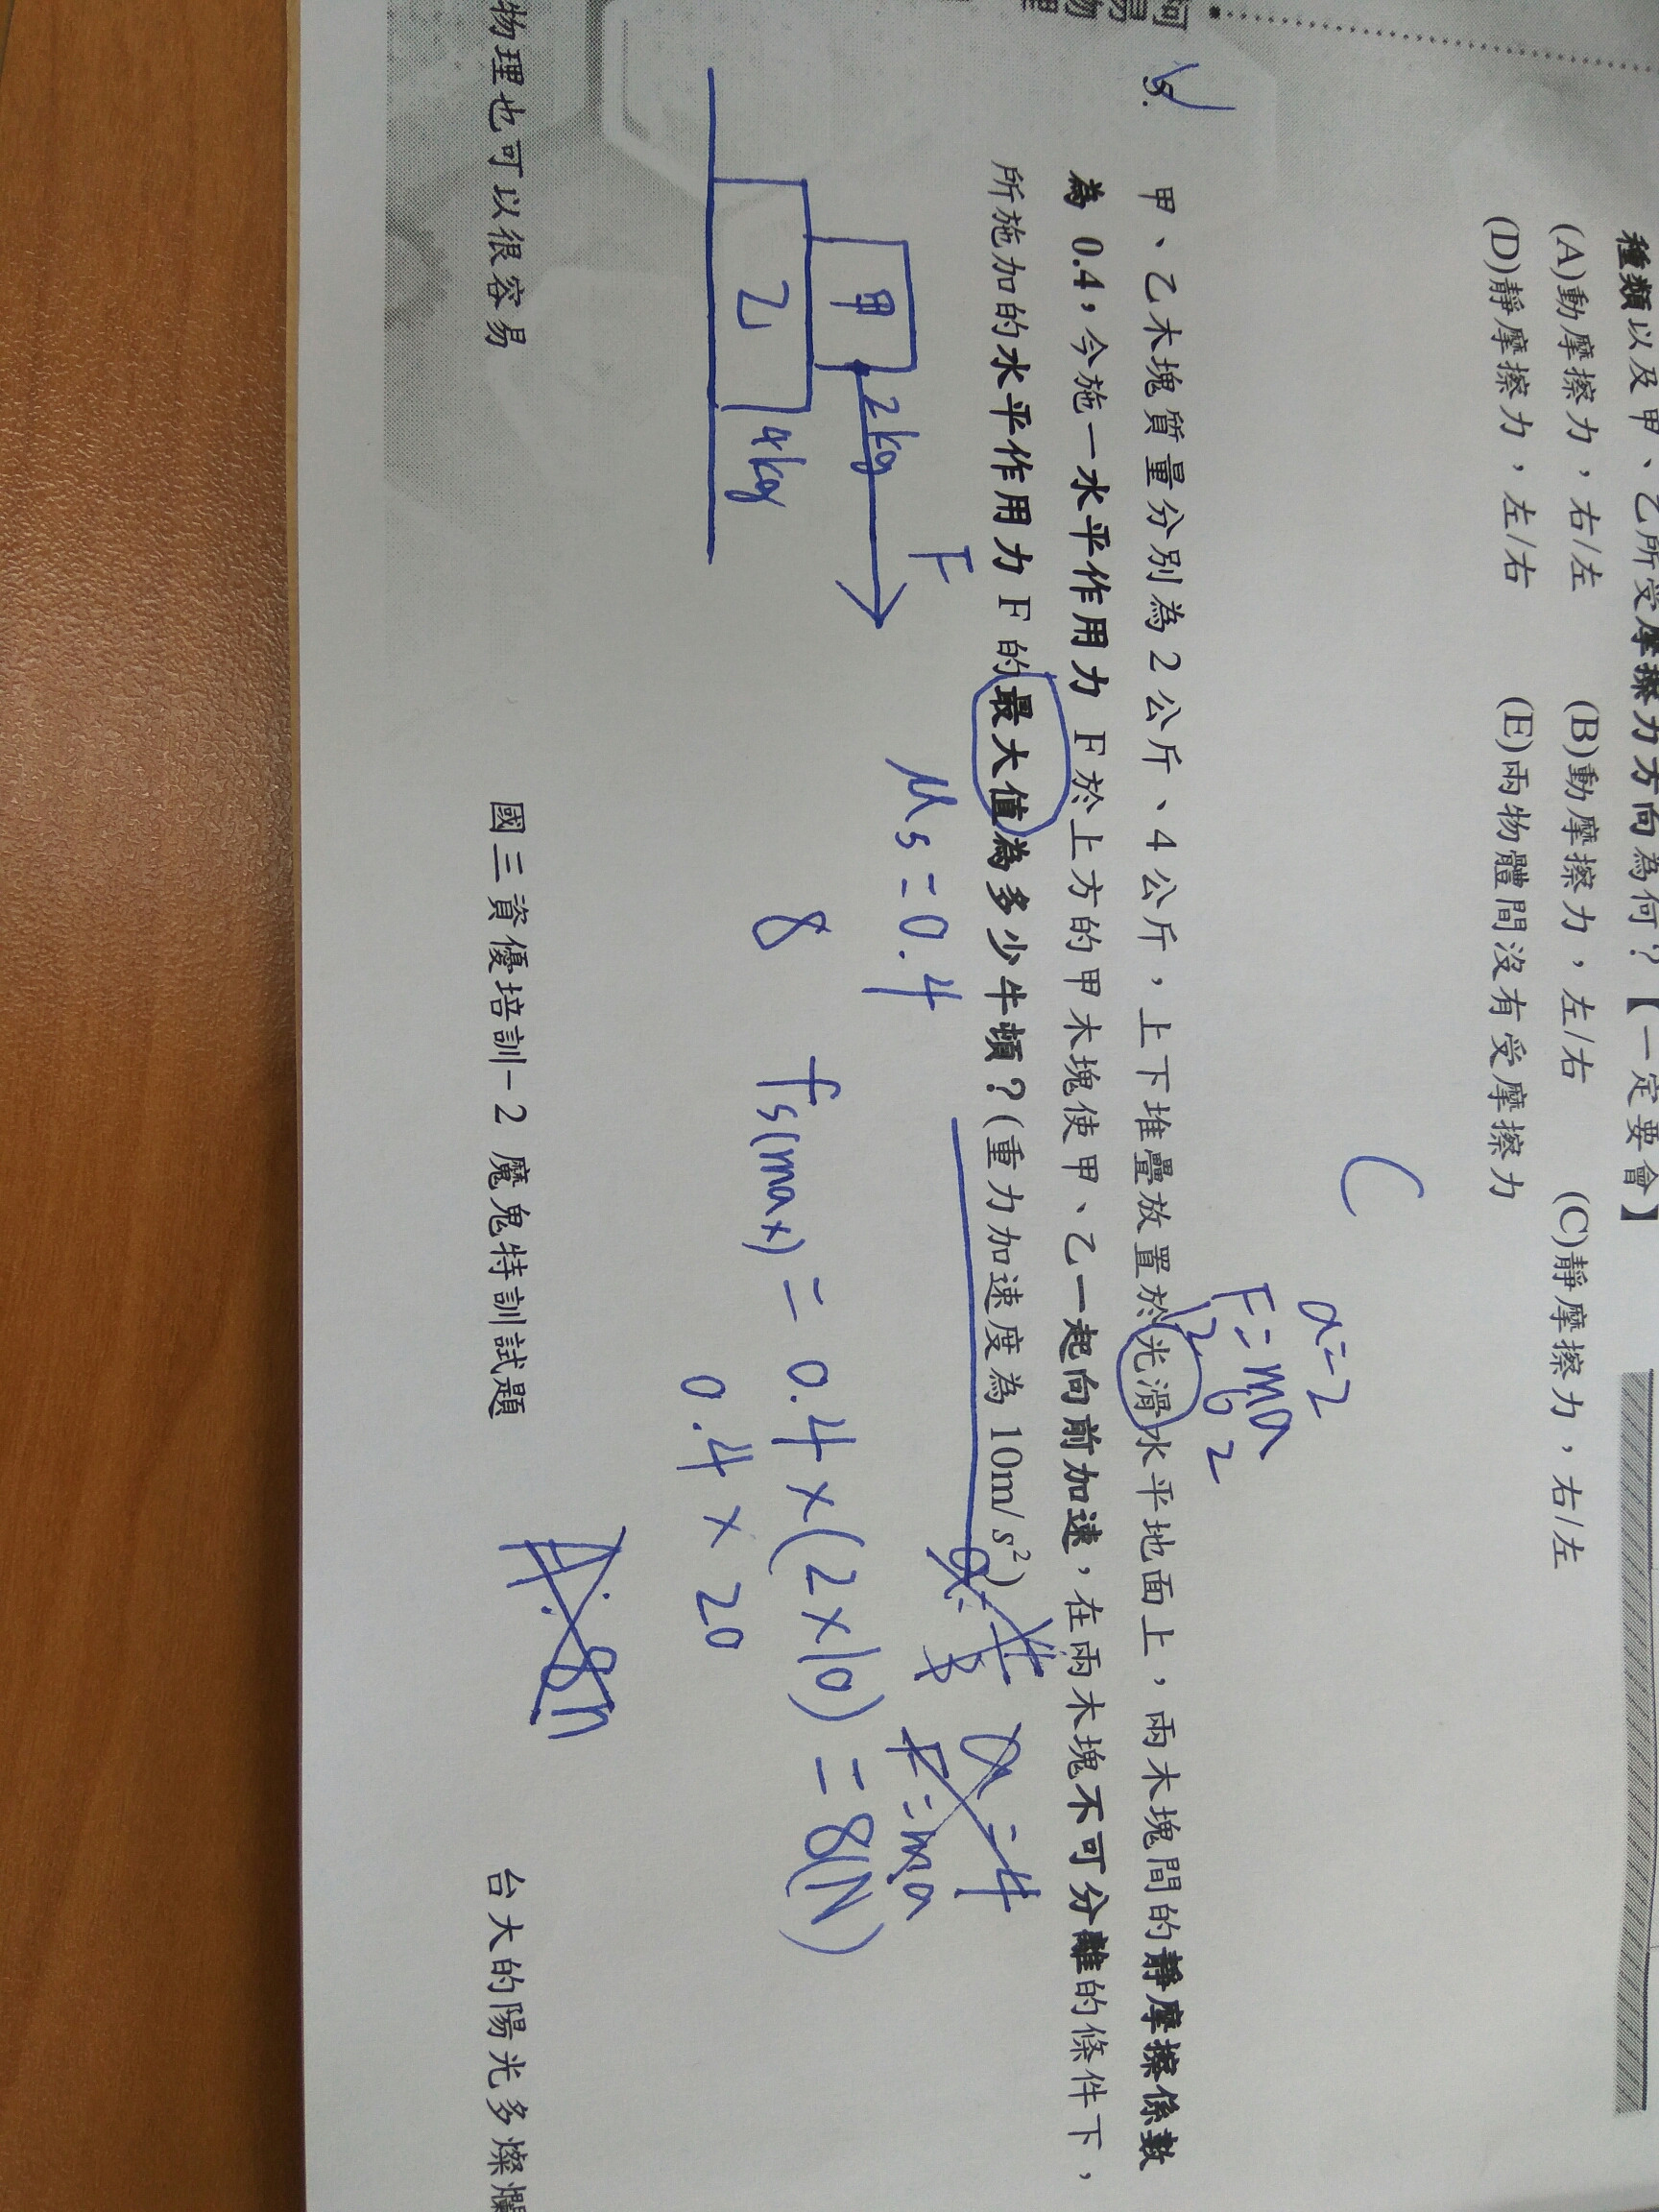 種類以及甲、乙所受摩擦力方向為何?【一定要會】
(A)動摩擦力，右/左 (B)動摩擦力，左/右 (C)靜摩擦力，右/左
(D)靜摩擦力，左/右 (E)兩物體間沒有受摩擦力
C
a=2
F=ma
12 6 2
甲、乙木塊質量分別為2公斤、4公斤，上下堆疊放置於光滑水平地面上，兩木塊間的靜摩擦係數
為 0.4，今施一水平作用力 F 於上方的甲木塊使甲、乙一起向前加速，在兩木塊不可分離的條件下，
所施加的水平作用力 F 的最大值為多少牛頓?(重力加速度為 10m/s²)
甲 2kg F
乙 4kg
μs=0.4
a=4
F=ma
8 fs(max) = 0.4×(2×10) = 8(N)
0.4×20
A: 8N
物理也可以很容易 國三資優培訓-2 魔鬼特訓試題 台大的陽光多燦爛